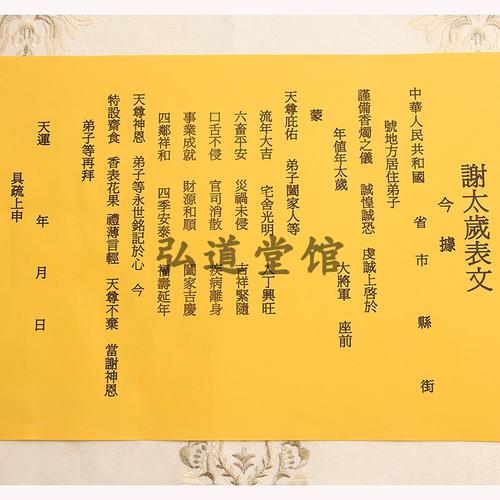 謝太歲表文
今據
中華人民共和國 省 市 縣 街
號地方居住弟子
謹備香燭之儀 誠惶誠恐 虔誠上啓於
年值年太歲 大將軍 座前
蒙
天尊庇佑 弟子闔家人等
流年大吉 宅舍光明 人丁興旺
六畜平安 災禍未侵 吉祥緊隨
口舌不侵 官司消散 疾病離身
事業成就 財源和順 闔家吉慶
四鄰祥和 四季安泰 福壽延年
天尊神恩 弟子等永世銘記於心 今
特設齋食 香表花果 禮薄言輕 天尊不棄 當謝神恩
弟子等再拜
天運 年 月 日
具疏上申
弘道堂馆